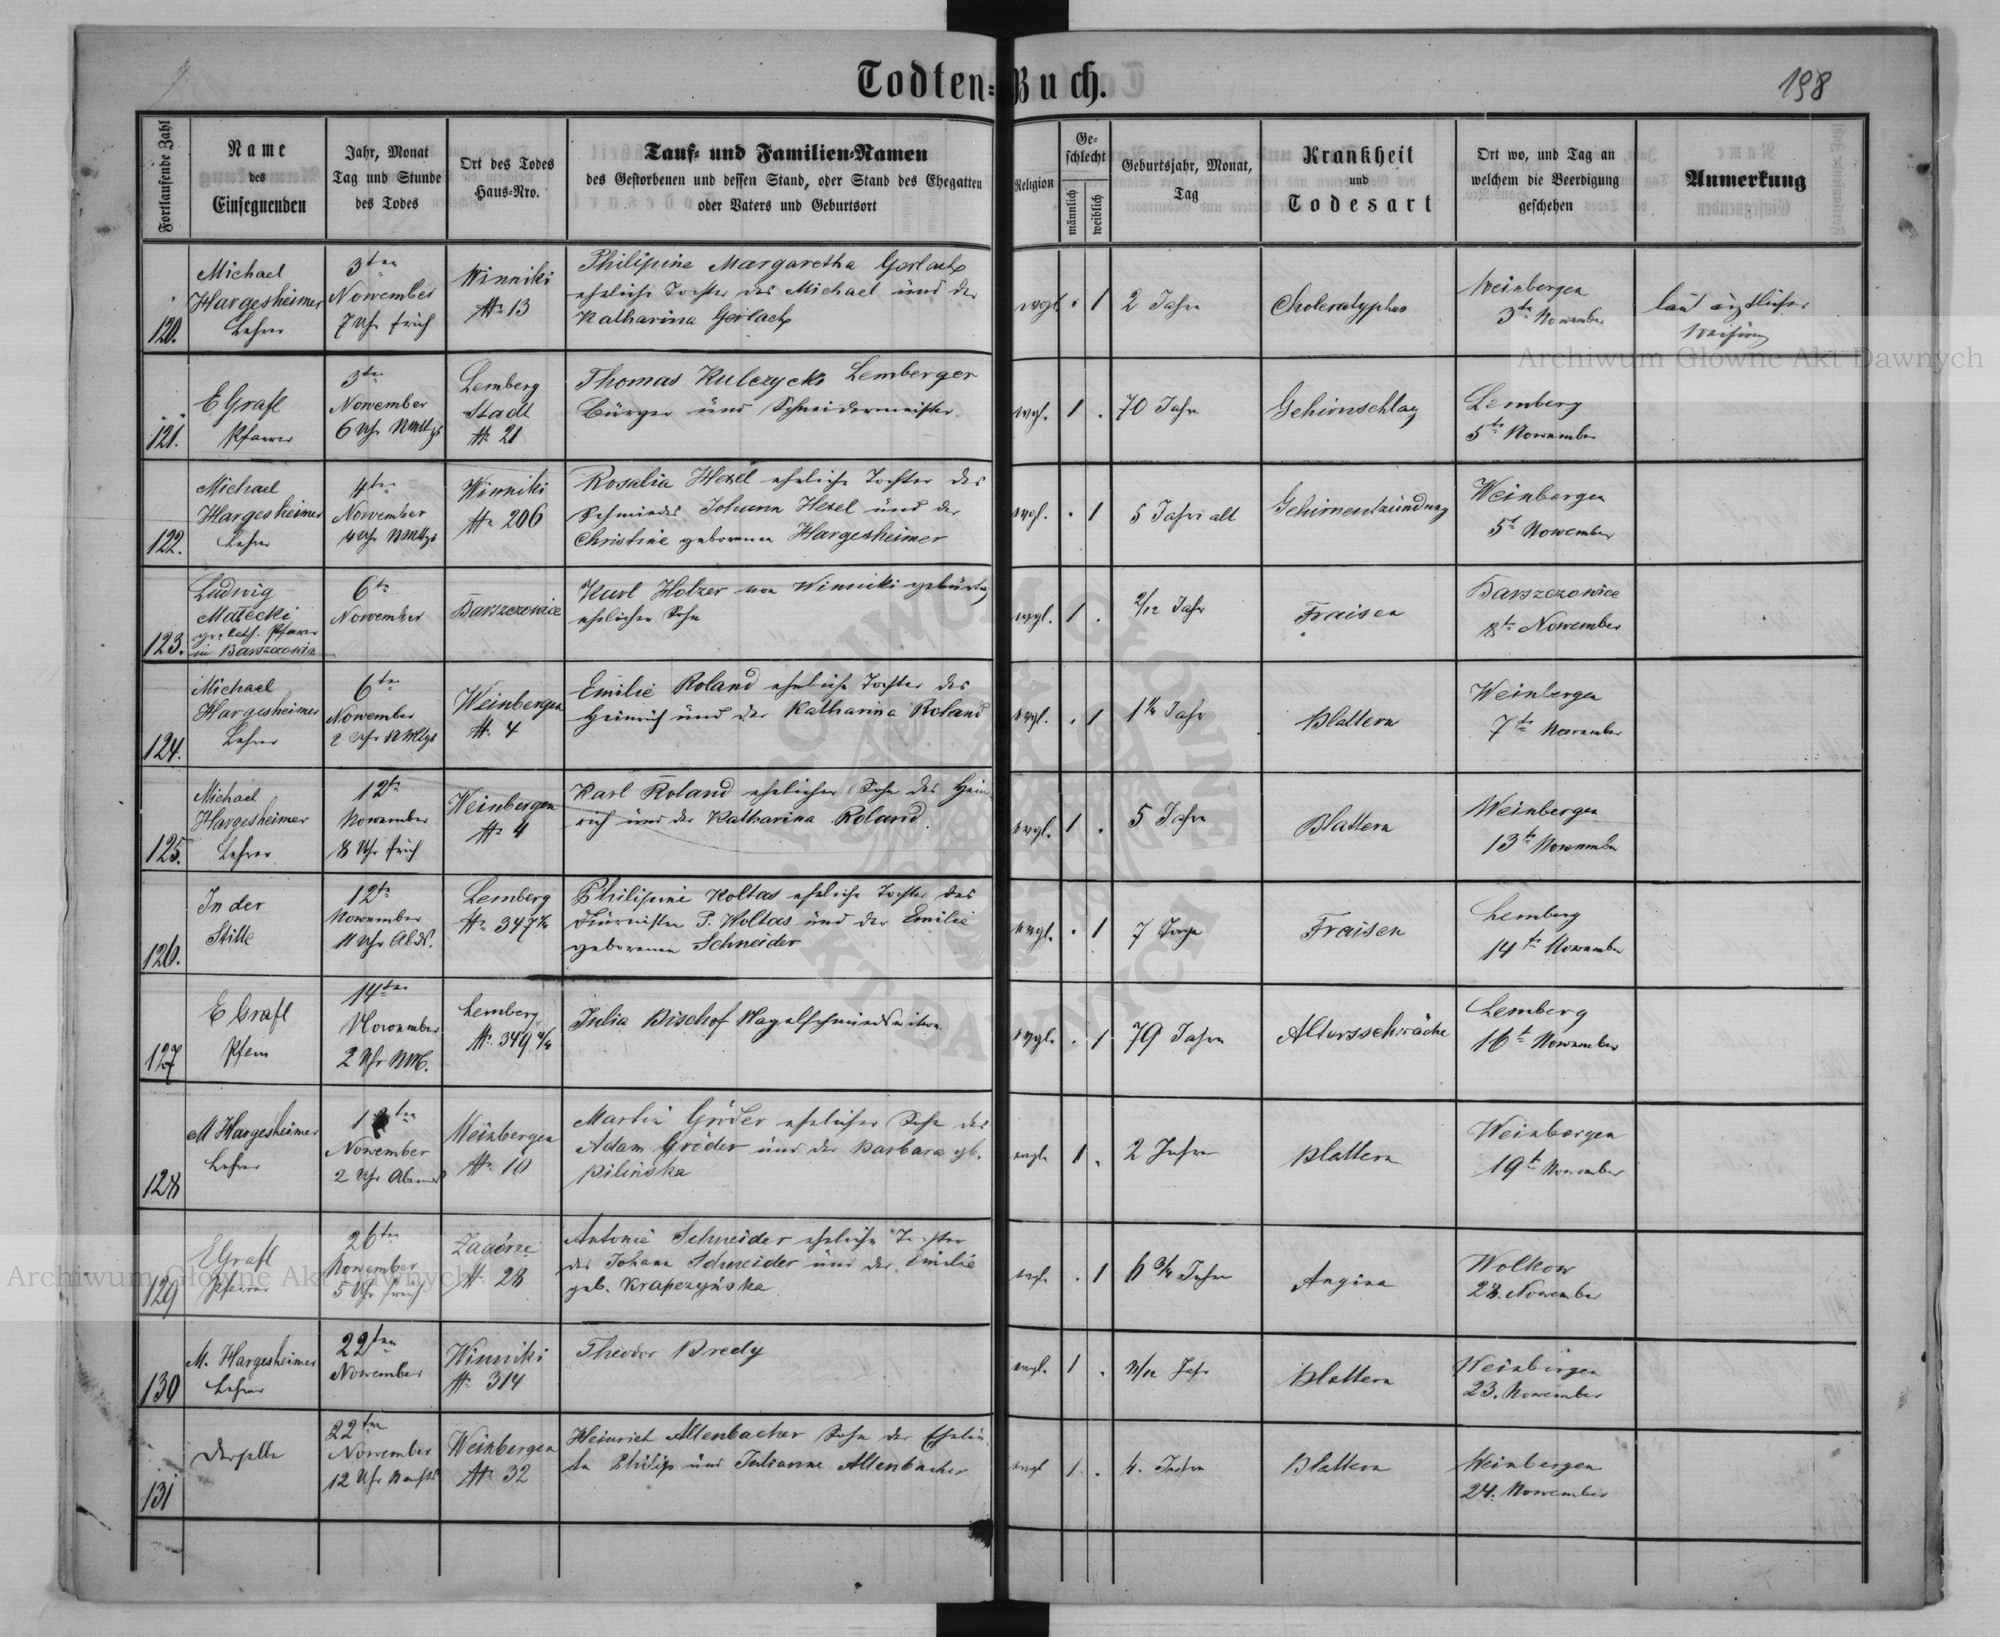 Todten-Buch.
198
Fortlaufende Zahl
Name
des
Einsegnenden
Jahr, Monat
Tag und Stunde
des Todes
Ort des Todes
Haus-Nro.
Tauf- und Familien-Namen
des Gestorbenen und dessen Stand, oder Stand des Ehegatten
oder Vaters und Geburtsort
Religion
Ge-
schlecht
männlich
weiblich
Geburtsjahr, Monat,
Tag
Krankheit
und
Todesart
Ort wo, und Tag an
welchem die Beerdigung
geschehen
Anmerkung
120.
Michael
Hargesheimer
Lehrer
3ten
November
7 Uhr früh
Winniki
№ 13
Philipine Margaretha Gerlach
eheliche Tochter des Michael und der
Katharina Gerlach
evgl. . 1
2 Jahre
Choleratyphus
Weinbergen
3te November
laut ärztlicher
121.
E Grafl
Pfarrer
3ten
November
6 Uhr Nmttgs
Lemberg
Stadt
№ 21
Thomas Kulczycki Lemberger
Bürger und Schneidermeister
evgl. 1 .
70 Jahre
Gehirnschlag
Lemberg
5te November
122.
Michael
Hargesheimer
Lehrer
4ten
November
4 Uhr NMttgs
Winniki
№ 206
Rosalia Hexel eheliche Tochter des
Schmiedes Johann Hexel und der
Christine geborenen Hargesheimer
evgl. . 1
5 Jahre alt
Gehirnentzündung
Weinbergen
5t November
123.
Ludwig
Matecki
gr. kath. Pfarrer
in Barszczowice
6te
November
Barszczowice
Karl Holzer von Winniki gebürtig
ehelicher Sohn
evgl. 1 .
2/12 Jahr
Fraisen
Barszczowice
8te November
124.
Michael
Hargesheimer
Lehrer
6ten
November
2 Uhr NMttgs
Weinbergen
№ 4
Emilie Roland eheliche Tochter des
Heinrich und der Katharina Roland
evgl. . 1
Jahr
Blattern
Weinbergen
7te November
125.
Michael
Hargesheimer
Lehrer
12te
November
8 Uhr früh
Weinbergen
№ 4
Karl Roland ehelicher Sohn des Hein-
rich und der Katharina Roland.
evgl. 1 .
5 Jahre
Blattern
Weinbergen
13te November
126.
In der
Stille
12te
November
11 Uhr Abds.
Lemberg
№ 347
Philipine Koltas eheliche Tochter des
P. Koltas und der Emilie
geborenen Schneider
evgl. . 1
7 Tage
Fraisen
Lemberg
14te November
127
E Grafl
Pfarrer
14ten
November
2 Uhr NM.
Lemberg
№ 349 4/4
Julia Bischof Nagelschmiedswitwe
evgl. . 1
79 Jahre
Altersschwäche
Lemberg
16t November
128
M Hargesheimer
Lehrer
November
2 Uhr Abends
Weinbergen
№ 10
Martin Gröder ehelicher Sohn des
Adam Gröder und der Barbara gb.
Pilinska
evgl. 1 .
2 Jahre
Blattern
Weinbergen
19t November
129
E Grafl
Pfarrer
26ten
November
5 Uhr früh
Zagórze
№ 28
Antonie Schneider eheliche Tochter
des Johann Schneider und der Emilie
geb. Krapczyńska
evgl. . 1
6 3/4 Jahre
Angina
Wolkow
28. November
130
M. Hargesheimer
Lehrer
22ten
November
Winniki
№ 314
Theodor Bredy
evgl. 1 .
Jahr
Blattern
Weinbergen
23. November
131
Derselbe
22ten
November
12 Uhr Nachts
Weinbergen
№ 32
Heinrich Altenbacher Sohn der Eheleu-
te Philip und Julianna Altenbacher
evgl 1 .
4. Jahre
Blattern
Weinbergen
24. November
Archiwum Główne Akt Dawnych
Archiwum Główne Akt Dawnych
ARCHIWUM GŁÓWNE AKT DAWNYCH